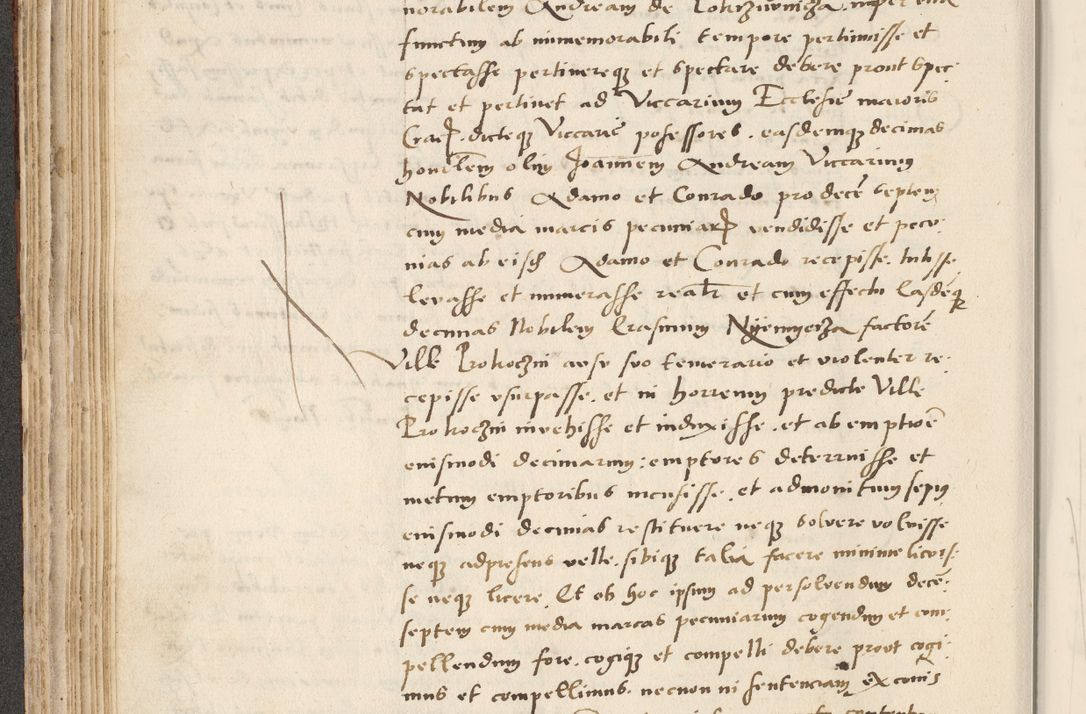 norabilem Andream de
functum ab inmemorabili tempore pertinuisse et
spectasse pertinereq et spectare debere prout spec-
tat et pertinet ad Viccarium Ecclesie maioris
Crac dicteq Viccarie possessores. easdemq decimas
honoblem olim Joannem Andream Viccarium
Nobilibus Adamo et Conrado pro decem septem
cum media marcis pecuniar vendidisse et pecu-
nias ab eisd Adamo et Conrado recepisse. tulisse
levasse et numerasse realr et cum effectu Easdeq
decimas Nobilem Erasmum factore
Ville Prokoczin ausu suo temerario et violenter re-
cepisse usurpasse. et in horreum predicte Ville
Prokoczin invehisse et induxisse. et ab emptioe
eiusmodi decimarum emptores deterruisse et
metum emptoribus incussisse. et admonitum sepius
eiusmodi decimas restituere neq solvere voluisse
neq adpresens velle. sibiq talia facere minime licuis-
se neq licere. Et ob hoc ipsum ad persolvendum decem
septem cum media marcas pecuniarum cogendum et com-
pellendum fore. cogiq et compelli debere prout cogi-
mus et compellimus. necnon in sententiam excois